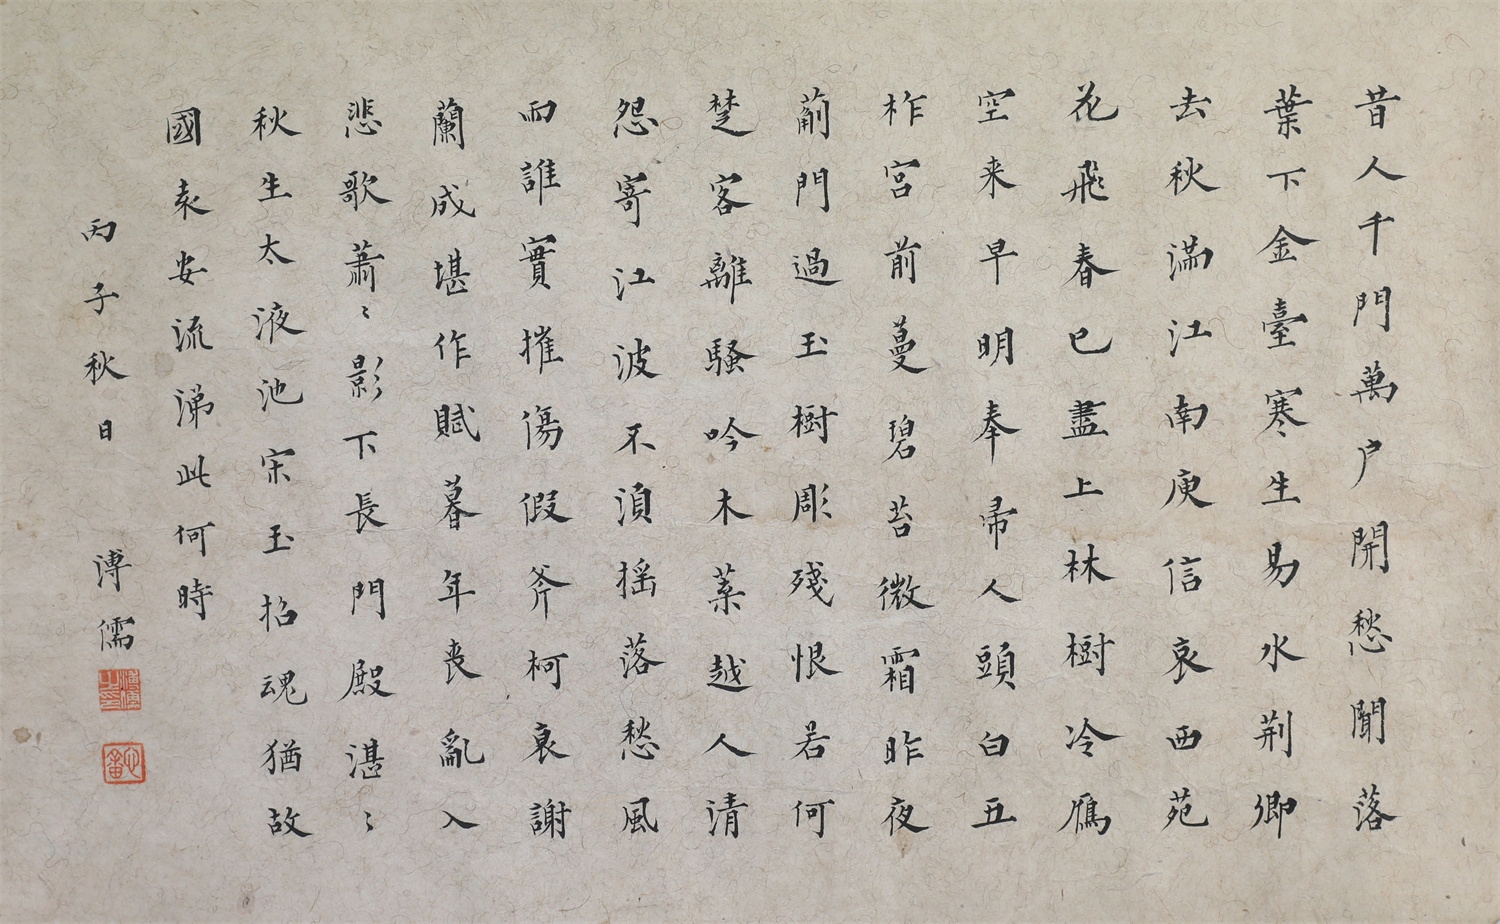 昔人千門萬户開愁聞落
葉下金臺寒生易水荆卿
去秋滿江南庾信哀西苑
花飛春已盡上林樹冷鴈
空来早明奉帚人頭白五
柞宮前蔓碧苔微霜昨夜
薊門過玉樹彫殘恨若何
楚客離騷吟木葉越人清
怨寄江波不湏摇落愁風
雨誰實摧傷假斧柯衰謝
蘭成堪作賦暮年喪亂入
悲歌蕭〻影下長門殿湛〻
秋生太液池宋玉招魂猶故
國袁安流涕此何時
丙子秋日
溥儒
溥儒之印
心畬